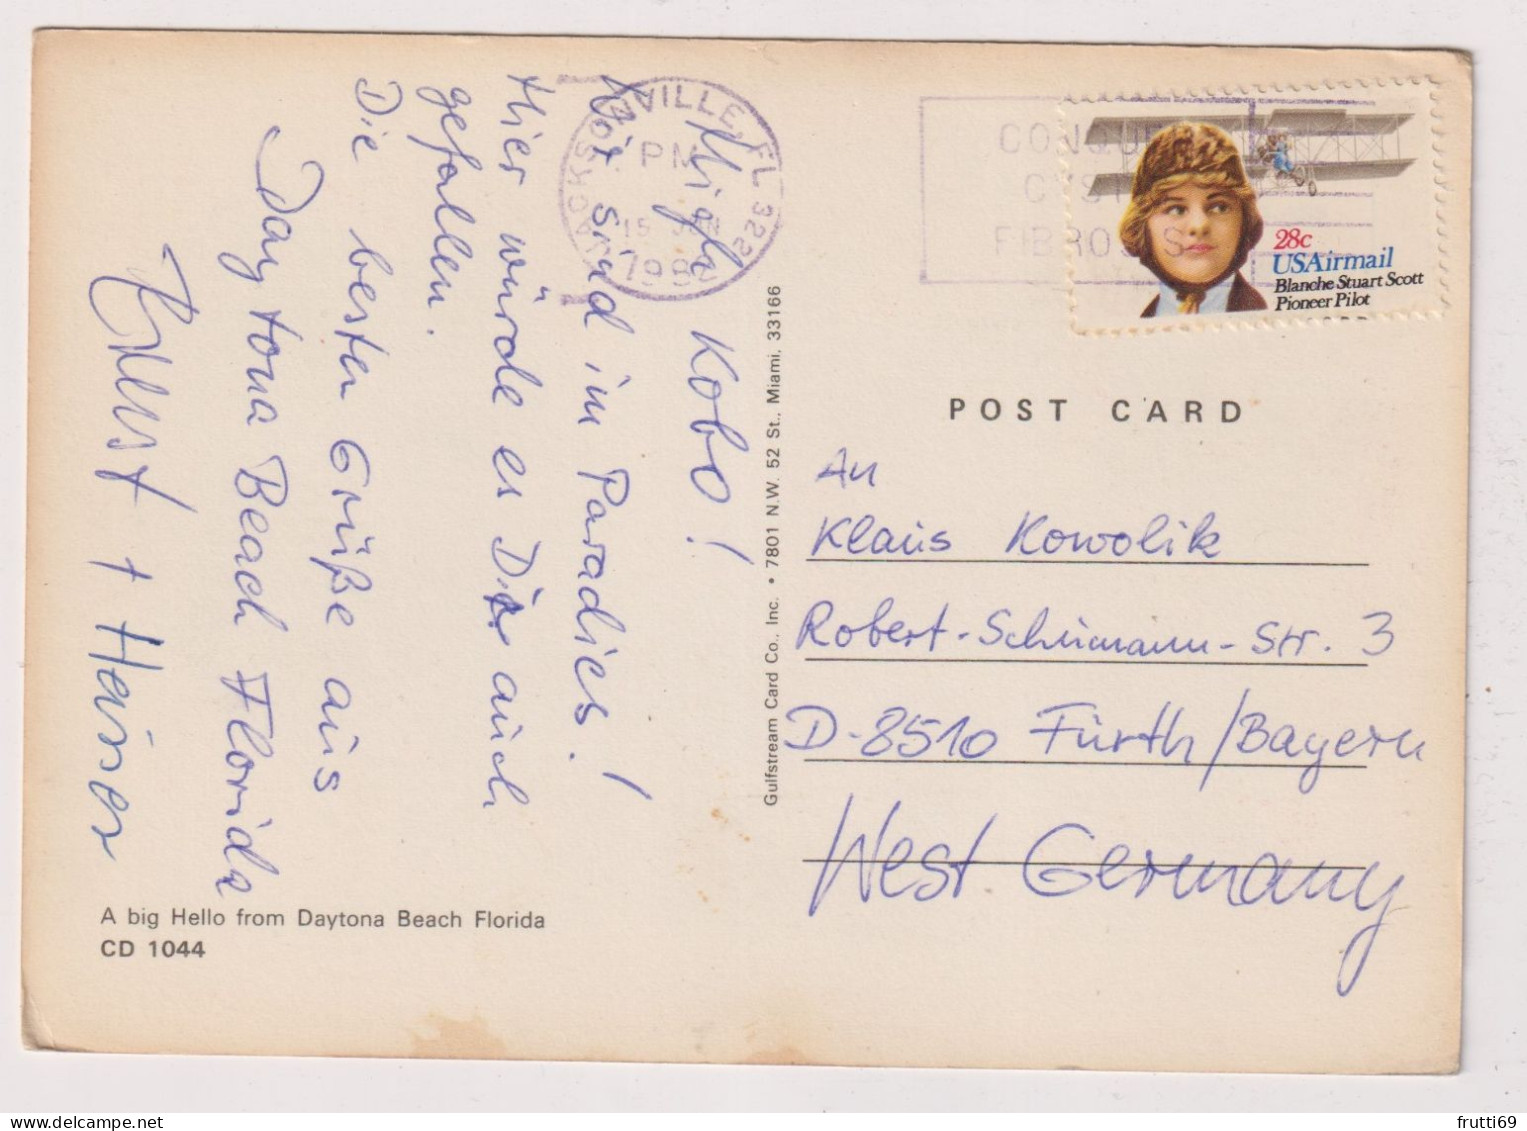 Kobo!
Wir sind im Paradies!
Hier würde es Dir auch
gefallen.
Die besten Grüße aus
Daytona Beach Florida
Ernst + Heiner
A big Hello from Daytona Beach Florida
CD 1044
Gulfstream Card Co., Inc. • 7801 N.W. 52 St., Miami, 33166
VILLE, FL 322
PM
15 JUN
198
CONQUER
CYSTIC
FIBROSIS
28c
USAirmail
Blanche Stuart Scott
Pioneer Pilot
POST CARD
An
Klaus Kowolik
Robert-Schumann-Str. 3
D-8510 Fürth/Bayern
West Germany
frutti69